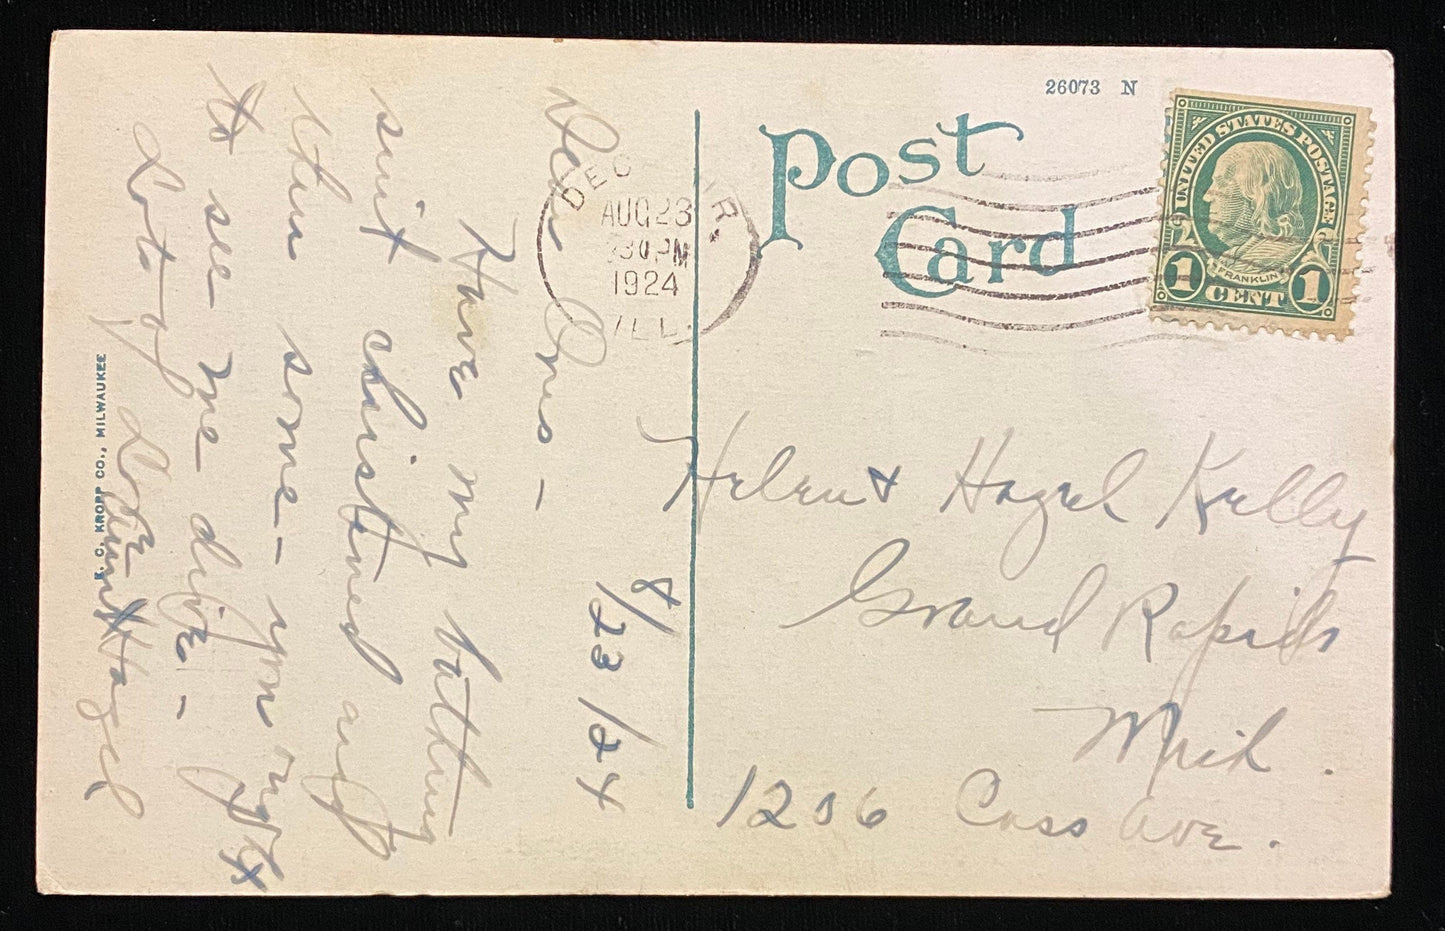 26073 N
Post
Card
UNITED STATES POSTAGE
FRANKLIN
1 CENT 1
AUG 23
30 PM
1924
ILL.
8/23/24
Dear Ones —
Have my bathing
suit christened and
then some — you ought
to see me dive —
Lots of Love
Aunt Hazel
Helen & Hazel Kelly
Grand Rapids
Mich.
1206 Cass Ave.
E. C. KROPP CO., MILWAUKEE